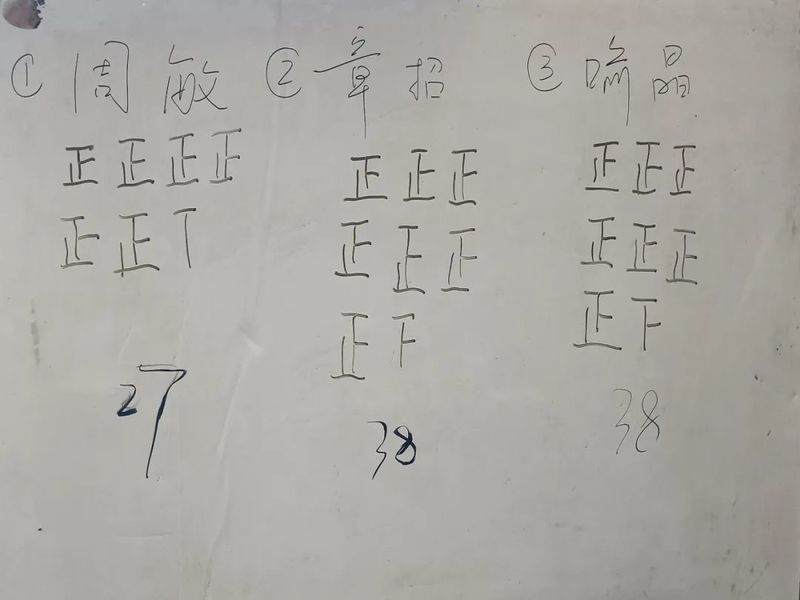 ① 周敏
正正正正
正正丅
27
② 章招
正正正
正正正
正下
38
③ 喻晶
正正正
正正正
正下
38